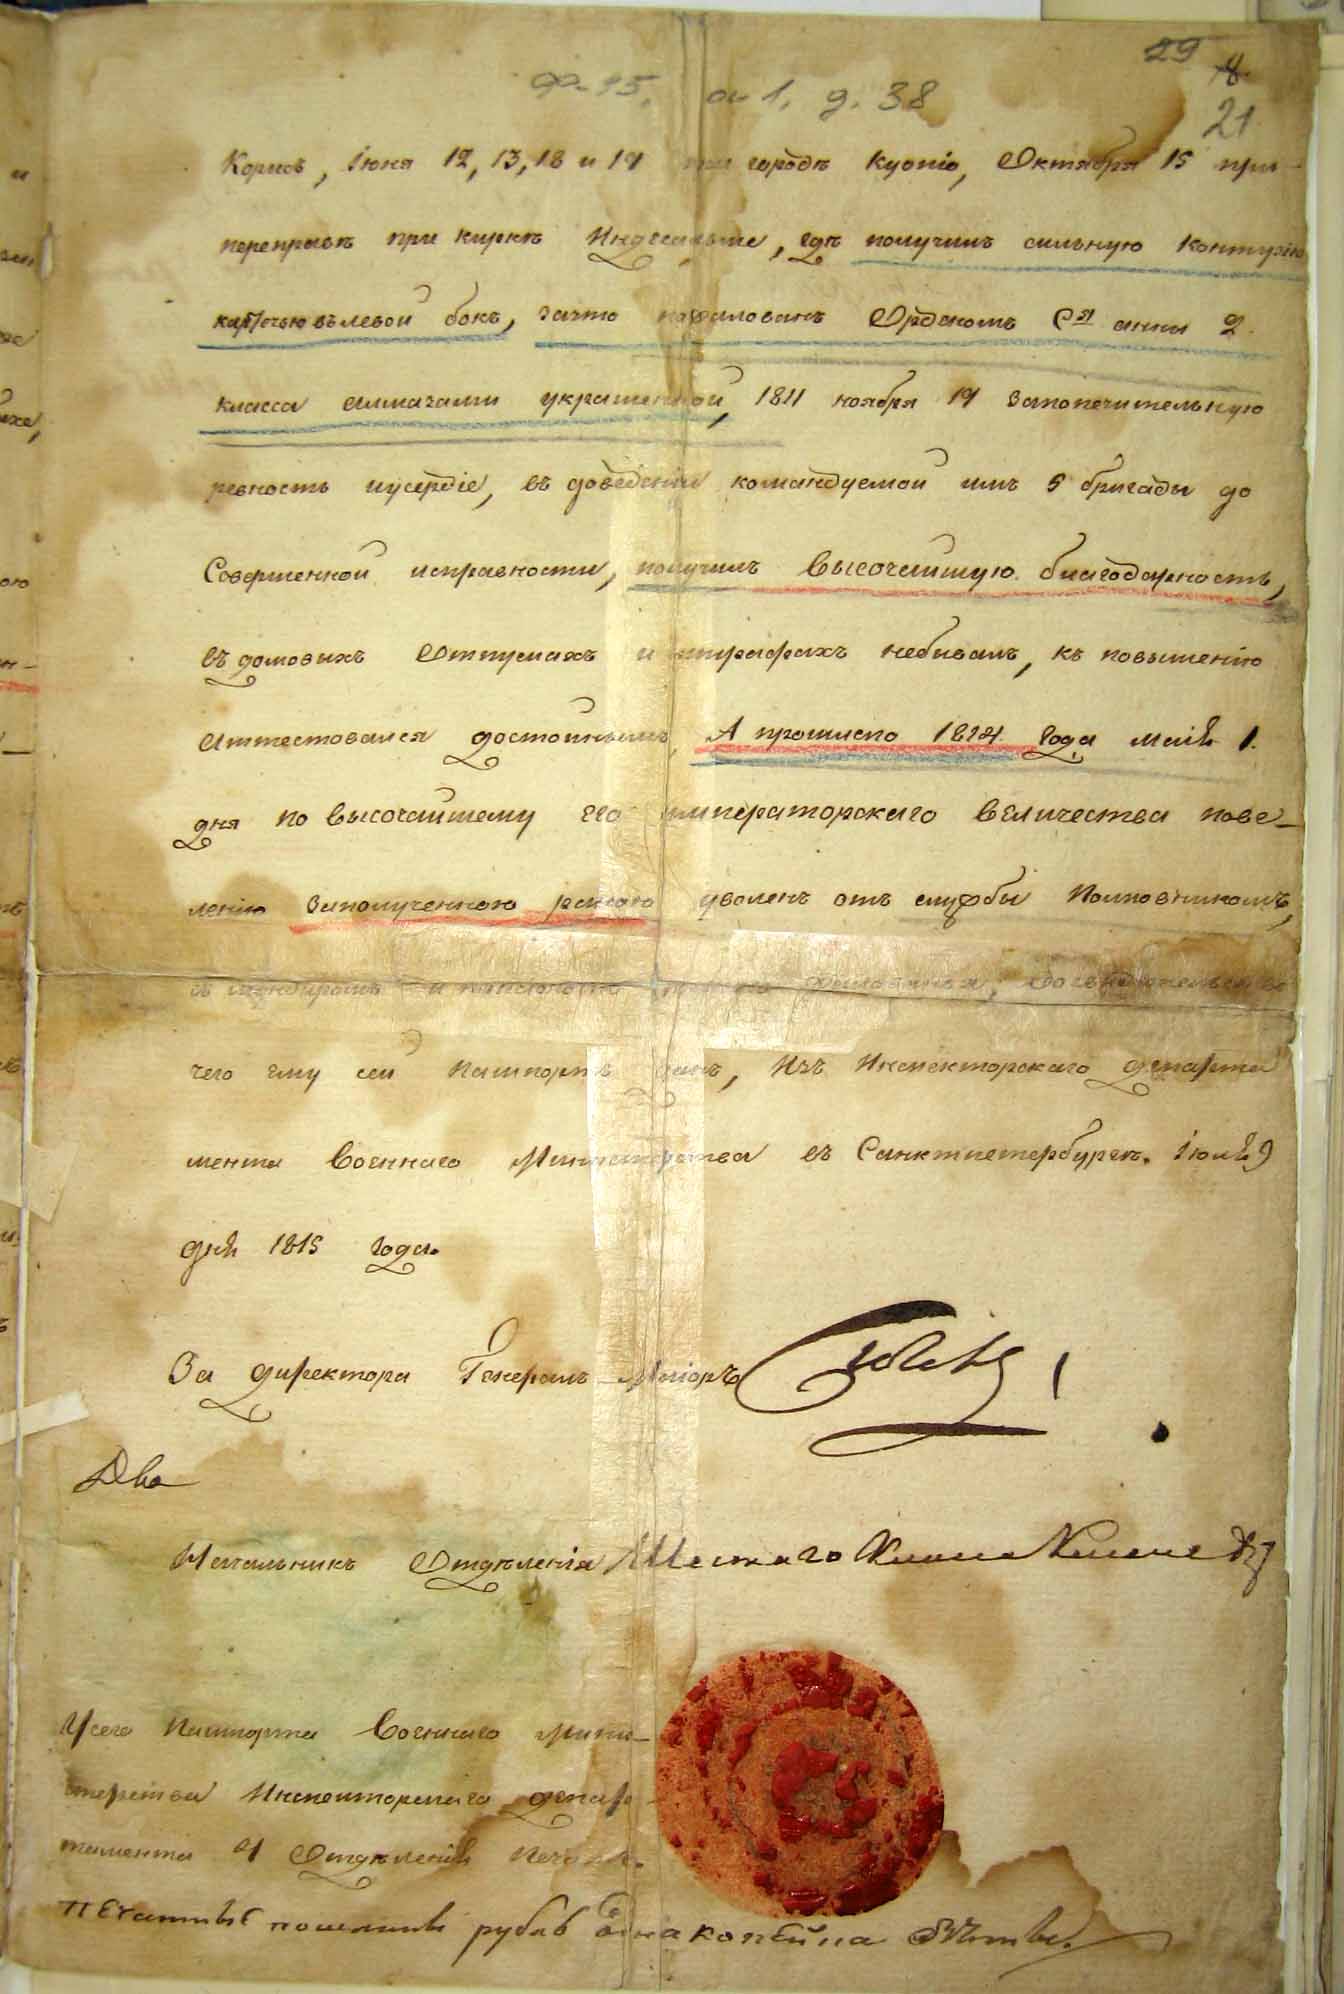 29 18
ф. 95, оп 1, д. 38
21
Корпсѣ, Іюня 12, 13, 18 и 19 при городѣ Куопіо, Октября 15 при
перепрывѣ при киркѣ Индесальме, гдѣ получилъ сильную контузію
картечью въ левой бокъ, зачто пожалованъ Орденомъ Стя анны 2
класса алмазами украшенной, 1811 ноября 19 запопечительную
ревность иусердіе, въ доведеніи командуемой имъ 5 бригады до
Совершенной исправности, получилъ высочайшую благодарность,
въ домовыхъ Отпускахъ и штрафахъ небывалъ, къ повышенію
Аттестовался достойнымъ, А прошлаго 1814 года маія 1.
дня по высочайшему его императорскаго величества пове-
ленію заполученною раною уволенъ отъ службы Полковникомъ,
съ мундиромъ и пансіономъ жалованья,
чего ему сей Пашпортъ данъ, Изъ Инспекторскаго департа
мента Военнаго Министерства въ Санктпетербургѣ. Іюля 9
дня 1815 года.
За директора Генералъ Маіоръ
Два
Начальникъ Отдѣленія Шестаго Класа
Усего Пашпорта Военнаго Мини-
стерства Инспекторскаго депар-
тамента 4 Отдѣленія Печать.
Печатные пошлины рубль одна копейка взяты.